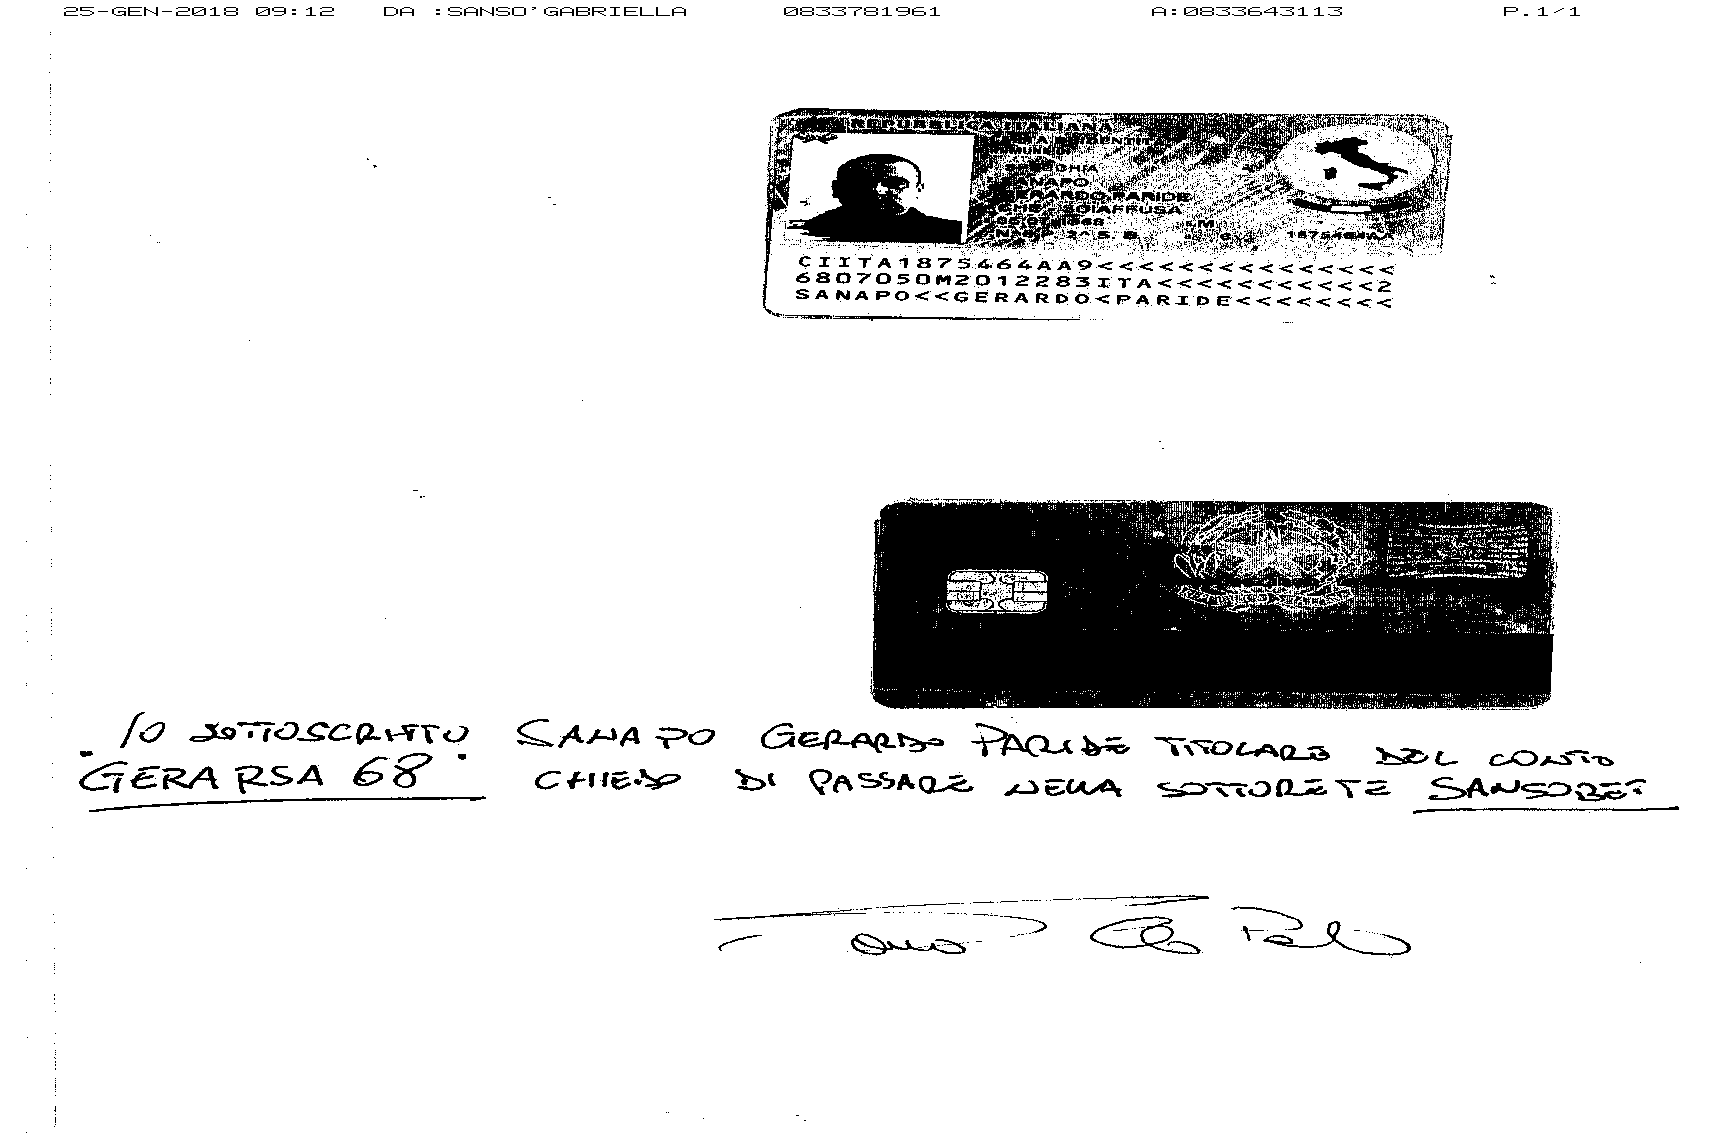 25-GEN-2018 09:12 DA :SANSO'GABRIELLA 0833781961 A:0833643113 P.1/1
REPUBBLICA ITALIANA
CIITA1875464AA9<<<<<<<<<<<<<<<
6807050M2012283ITA<<<<<<<<<<<2
SANAPO<<GERARDO<PARIDE<<<<<<<<
IO SOTTOSCRITTO SANAPO GERARDO PARIDE TITOLARE DEL CONTO
"GERARSA 68" CHIEDO DI PASSARE NELLA SOTTORETE SANSOBET